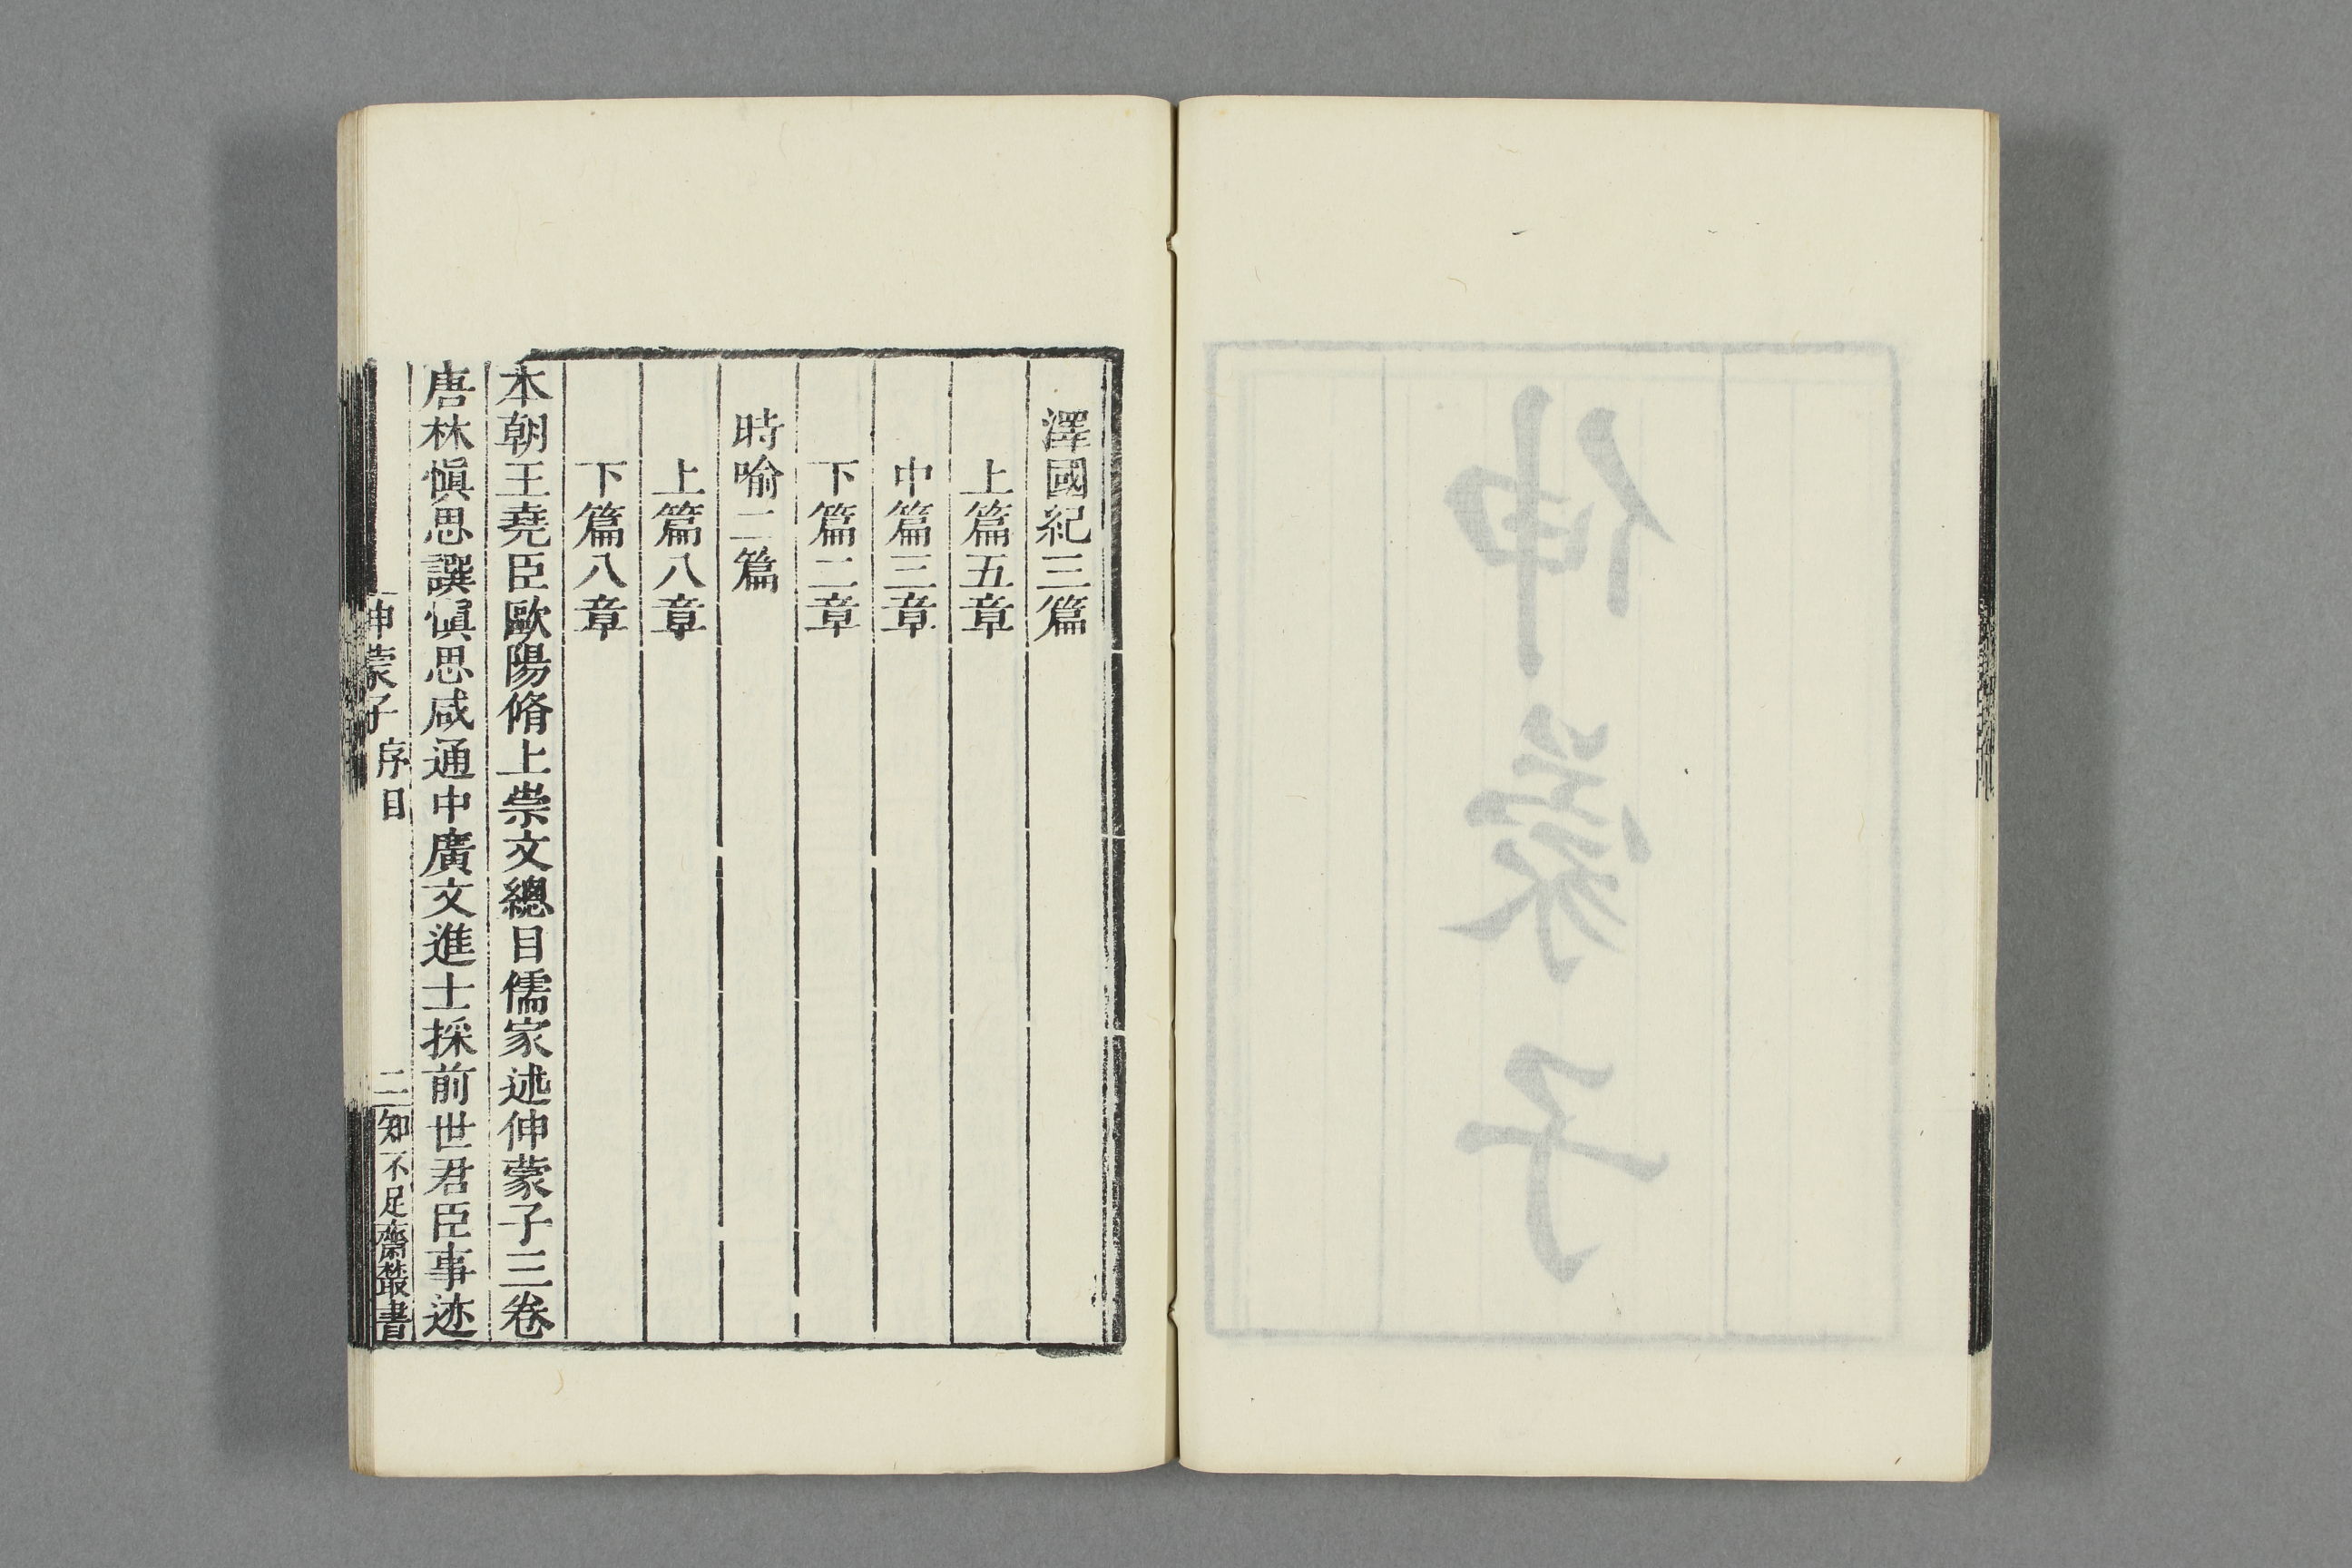 伸蒙子
澤國紀三篇
上篇五章
中篇三章
下篇二章
時喻二篇
上篇八章
下篇八章
本朝王堯臣歐陽脩上崇文總目儒家述伸蒙子三卷
唐林愼思譔愼思咸通中廣文進士採前世君臣事迹
伸蒙子 序目 二 知不足齋叢書